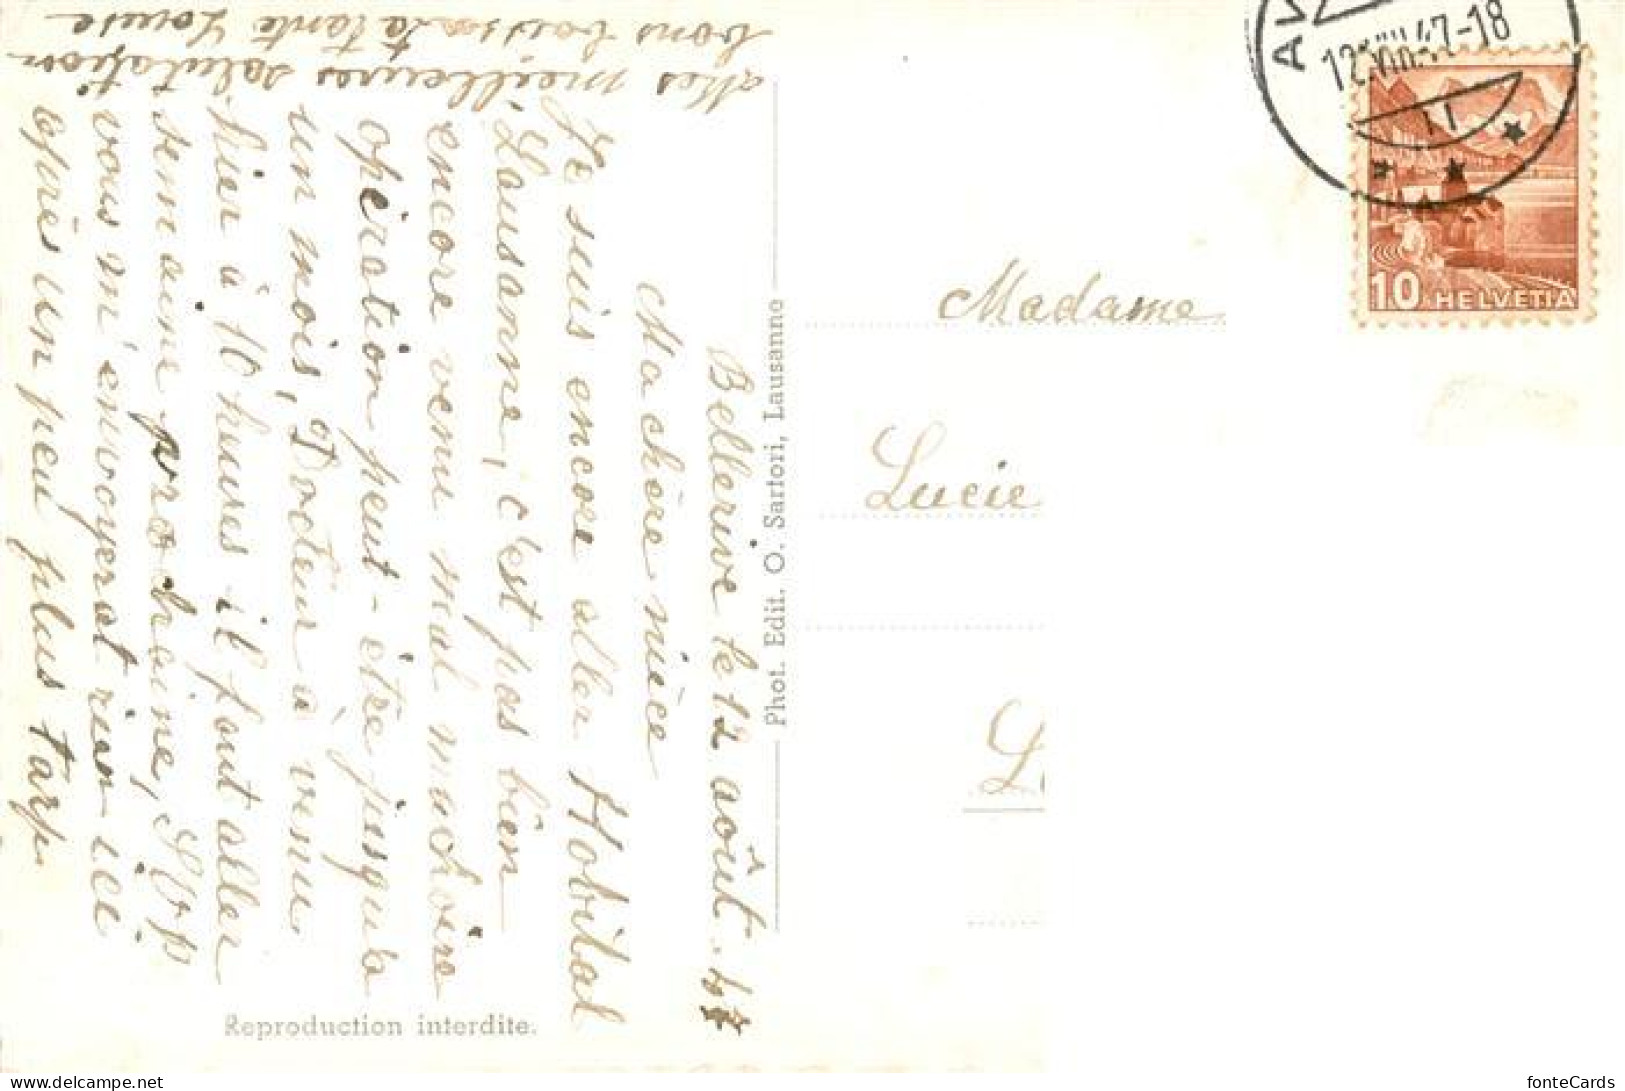 Bellerive le 12 août. 47
Ma chère nièce
Je suis encore aller Hobital
Lousanne, c'est pas bien
encore venu mal machoire
opération peut-être jusqu'a
un mois, Docteur à venu
hier à 10 heures il faut aller
semaine prochaine,
vous m'envoyerat rien ici
après un peu plus tarp.
meilleures salutation
bons baisse la tante Louise
Phot. Edit. O. Sartori, Lausanne
Reproduction interdite.
Madame
Lucie
L
AV
12.VIII.47-18
10 HELVETIA
fonteCards